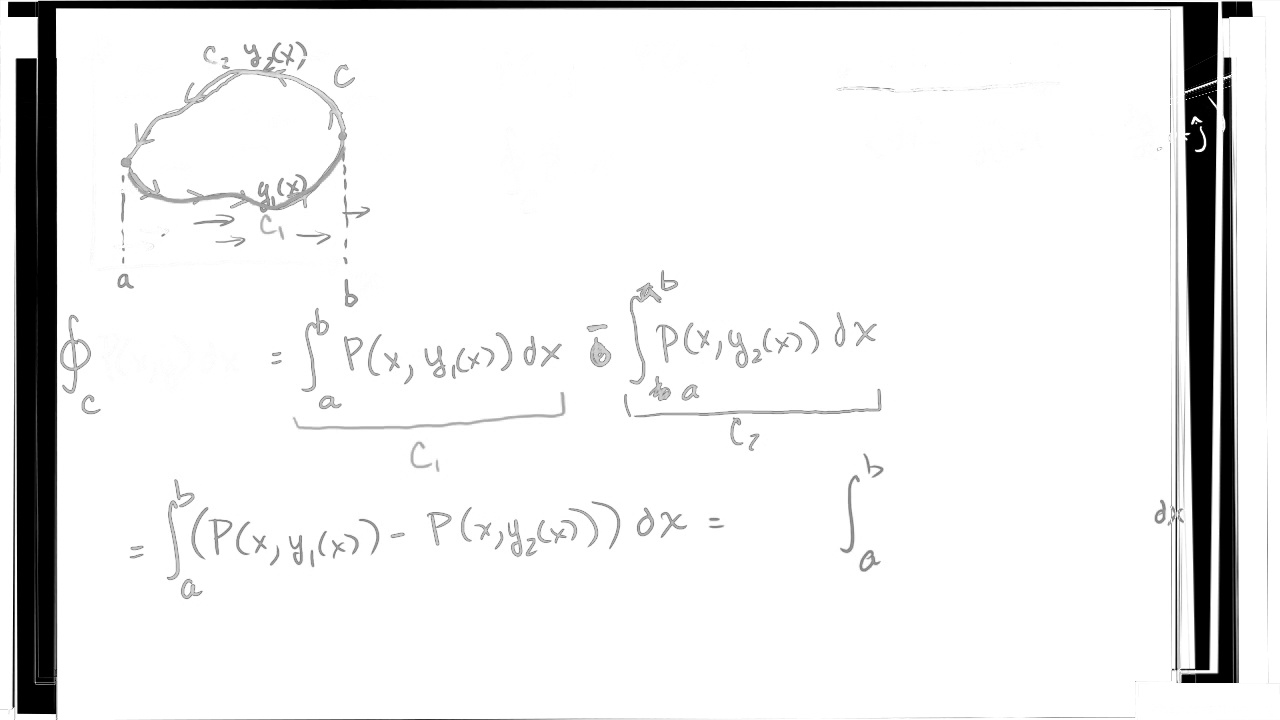 C₂ y₂(x) C
ĵ )
y₁(x)
C₁
a b
∮_C = ∫_a^b P(x, y₁(x)) dx - ∫_a^b P(x, y₂(x)) dx
C₁ C₂
= ∫_a^b (P(x, y₁(x)) - P(x, y₂(x))) dx = ∫_a^b dx